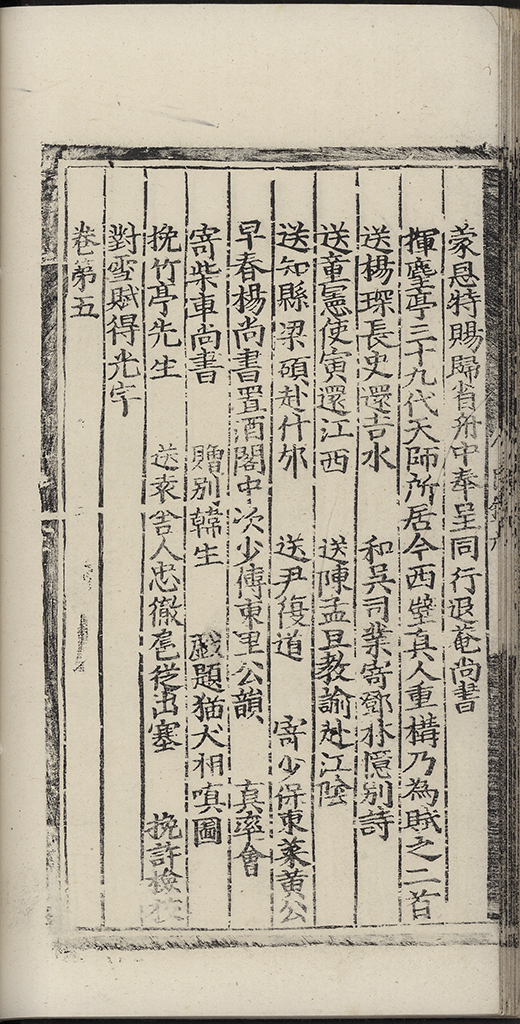 蒙恩特賜歸省舟中奉呈同行退菴尚書
揮麈亭三十九代天師所居今西壁真人重構乃為賦之二首
送楊琛長史還吉水 和吳司業寄鄧林憶別詩
送童憲使寅還江西 送陳孟旦教諭赴江陰
送知縣梁碩赴什邡 送尹復道 寄少保東萊黃公
早春楊尚書置酒閣中次少傅東里公韻 真率會
寄柴車尚書 贈別韓生 戲題猫犬相嗔圖
挽竹亭先生 送袁舍人忠徹扈從出塞 挽許檢
對雪賦得光字
卷第五